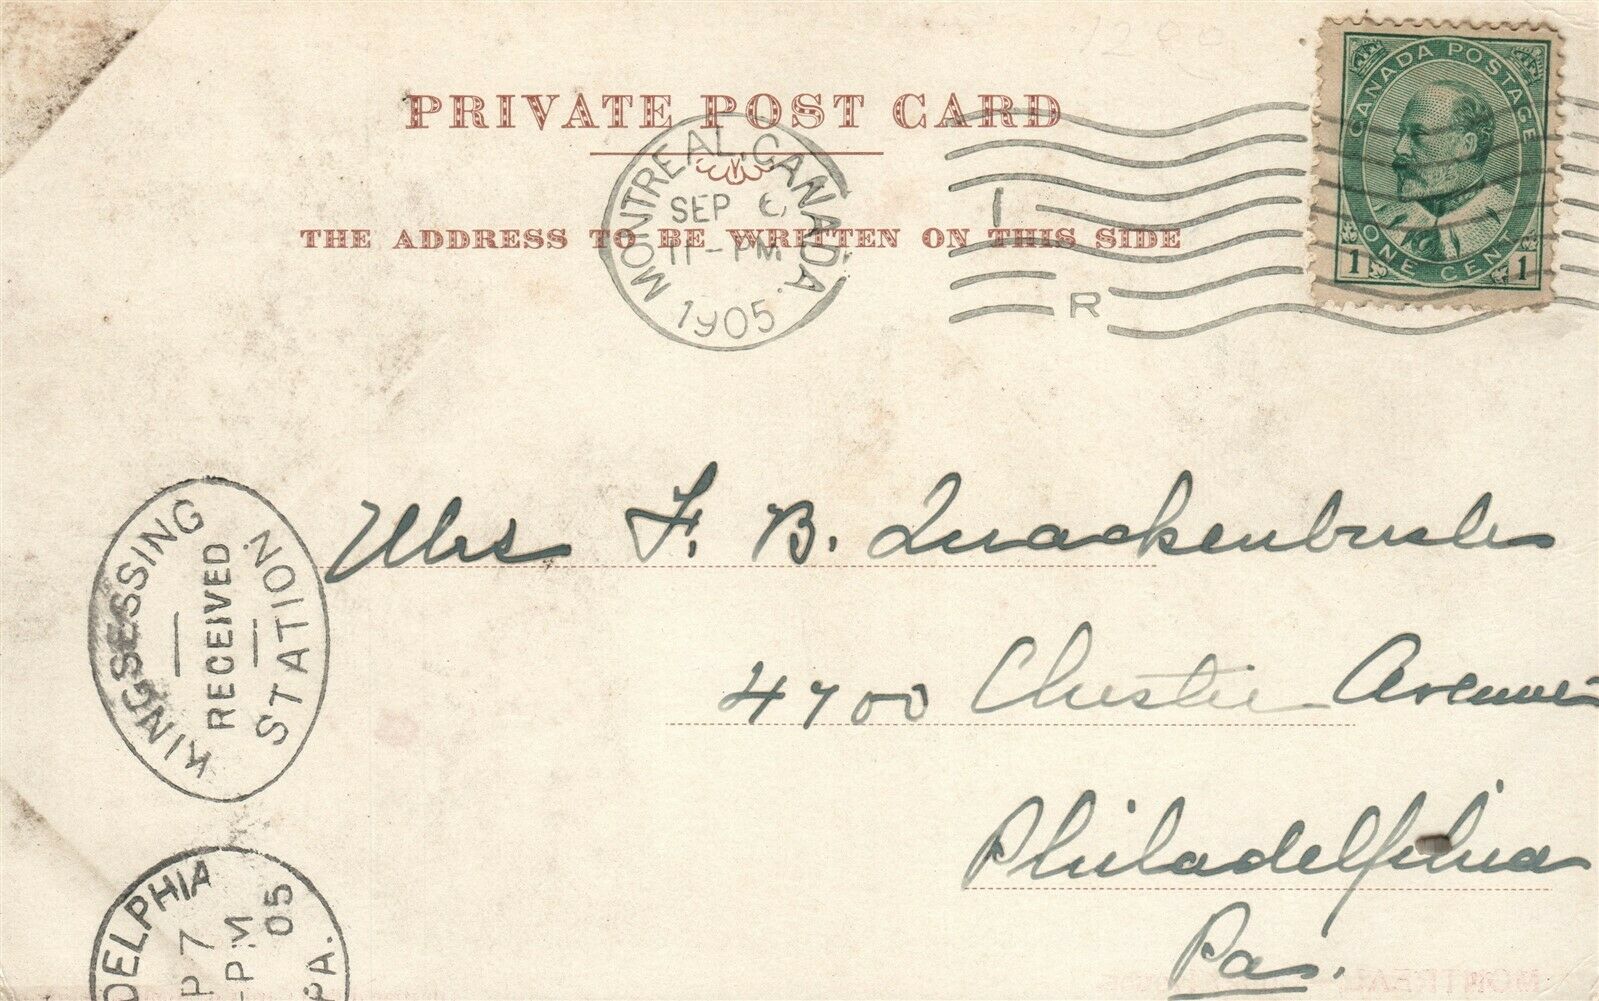 PRIVATE POST CARD
THE ADDRESS TO BE WRITTEN ON THIS SIDE
MONTREAL, CANADA.
SEP 6
11-PM
1905
I
R
CANADA POSTAGE
ONE CENT
1 1
KINGSESSING
RECEIVED
STATION.
Mrs F. B. Quackenbush
4700 Chester Avenue
Philadelphia
Pa.
DELPHIA
P 7
-PM
05
PA.